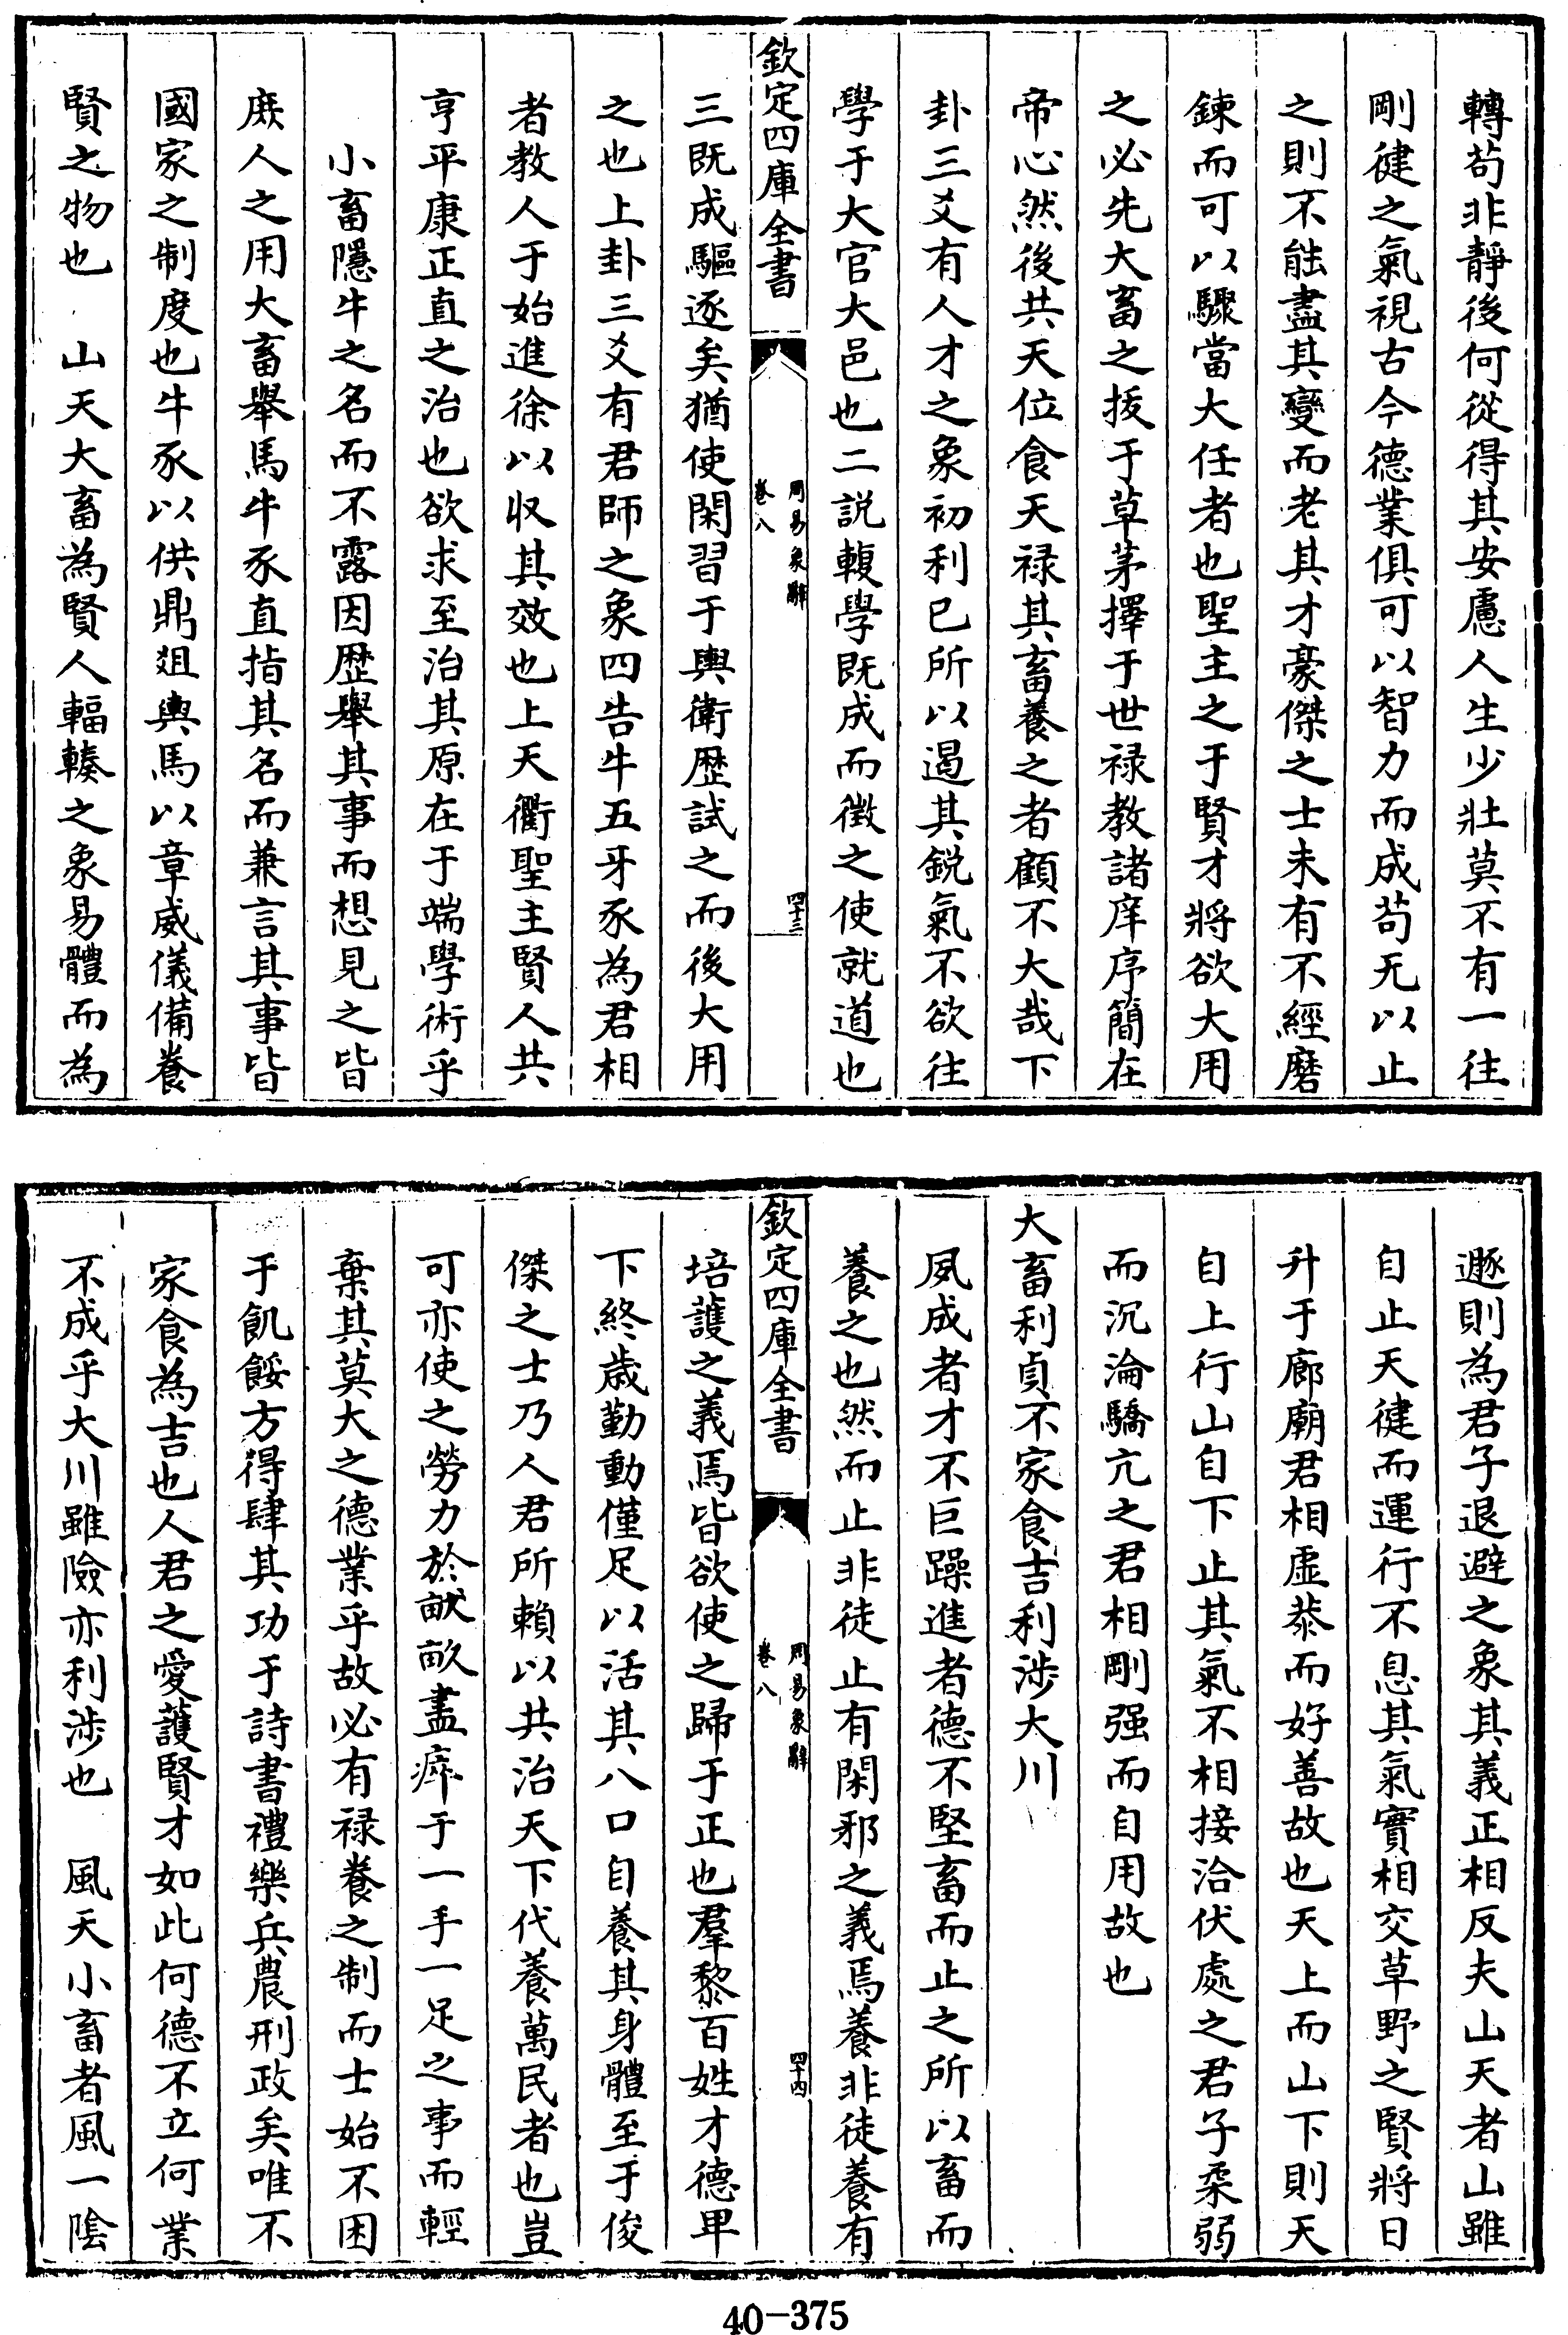 轉苟非靜後何從得其安慮人生少壯莫不有一往
剛健之氣視古今德業俱可以智力而成苟无以止
之則不能盡其變而老其才豪傑之士未有不經磨
鍊而可以驟當大任者也聖主之于賢才將欲大用
之必先大畜之拔于草茅擇于世祿教諸庠序簡在
帝心然後共天位食天祿其畜養之者顧不大哉下
卦三爻有人才之象初利已所以遏其銳氣不欲往
學于大官大邑也二説輹學既成而徵之使就道也
欽定四庫全書
周易象辭
卷八
四十三
三既成驅逐矣猶使閑習于輿衛歴試之而後大用
之也上卦三爻有君師之象四告牛五牙豕為君相
者教人于始進徐以收其效也上天衢聖主賢人共
亨平康正直之治也欲求至治其原在于端學術乎
小畜隱牛之名而不露因歴舉其事而想見之皆
庶人之用大畜舉馬牛豕直指其名而兼言其事皆
國家之制度也牛豕以供鼎俎輿馬以章威儀備養
賢之物也 山天大畜為賢人輻輳之象易體而為
遯則為君子退避之象其義正相反夫山天者山雖
自止天健而運行不息其氣實相交草野之賢將日
升于廊廟君相虛恭而好善故也天上而山下則天
自上行山自下止其氣不相接洽伏處之君子柔弱
而沉淪驕亢之君相剛强而自用故也
大畜利貞不家食吉利涉大川
夙成者才不巨躁進者德不堅畜而止之所以畜而
養之也然而止非徒止有閑邪之義焉養非徒養有
欽定四庫全書
周易象辭
卷八
四十四
培護之義焉皆欲使之歸于正也羣黎百姓才德卑
下終歲勤動僅足以活其八口自養其身體至于俊
傑之士乃人君所賴以共治天下代養萬民者也豈
可亦使之勞力於畎畝盡瘁于一手一足之事而輕
棄其莫大之德業乎故必有禄養之制而士始不困
于飢餒方得肆其功于詩書禮樂兵農刑政矣唯不
家食為吉也人君之愛護賢才如此何德不立何業
不成乎大川雖險亦利涉也 風天小畜者風一陰
40-375